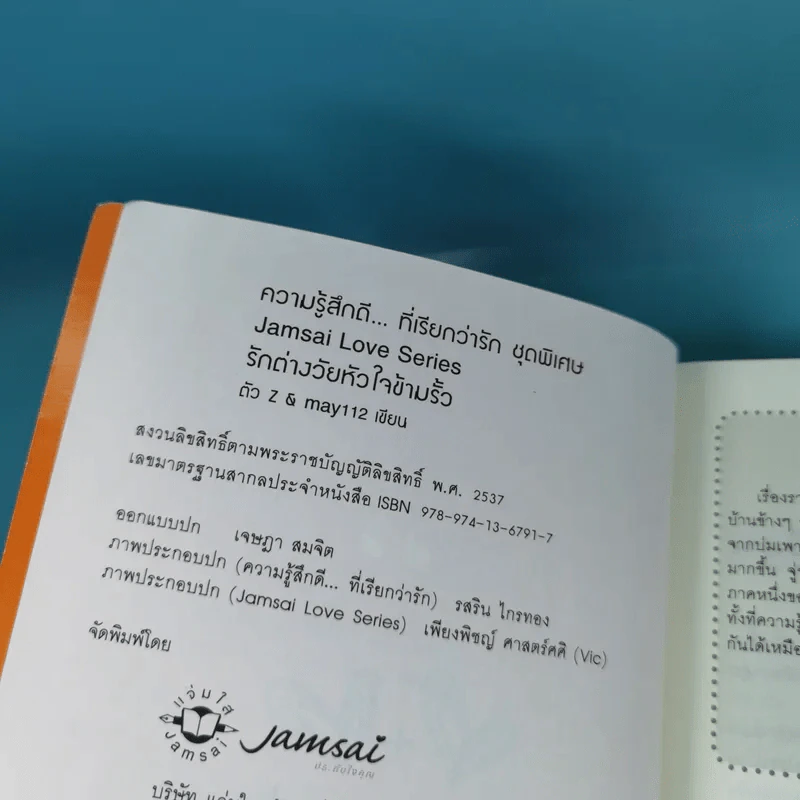 ความรู้สึกดี... ที่เรียกว่ารัก ชุดพิเศษ
Jamsai Love Series
รักต่างวัยหัวใจข้ามรั้ว
ตัว Z & may112 เขียน
สงวนลิขสิทธิ์ตามพระราชบัญญัติลิขสิทธิ์ พ.ศ. 2537
เลขมาตรฐานสากลประจำหนังสือ ISBN 978-974-13-6791-7
ออกแบบปก เจษฎา สมจิต
ภาพประกอบปก (ความรู้สึกดี... ที่เรียกว่ารัก) รสริน ไกรทอง
ภาพประกอบปก (Jamsai Love Series) เพียงพิชญ์ ศาสตร์ศศิ (Vic)
จัดพิมพ์โดย
แจ่มใส
Jamsai
Jamsai
บริษัท
เรื่องรา
บ้านข้างๆ
จากบ่มเพา
มากขึ้น จู่
ภาคหนึ่งขอ
ทั้งที่ความรู้
กันได้เหมือ